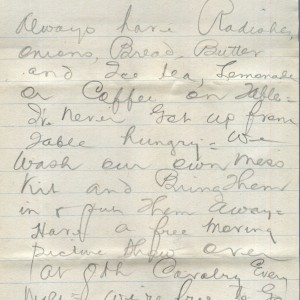 Always have Radishes
onions, Bread, Butter
and Ice tea, Lemonade
or Coffee on Table =
I never Get up from
Table Hungry = We
Wash our own Mess
Kit and Bring Them
in & put Them away =
Have a free Moving
picture show over
at 8th Cavalry Every
free to Go